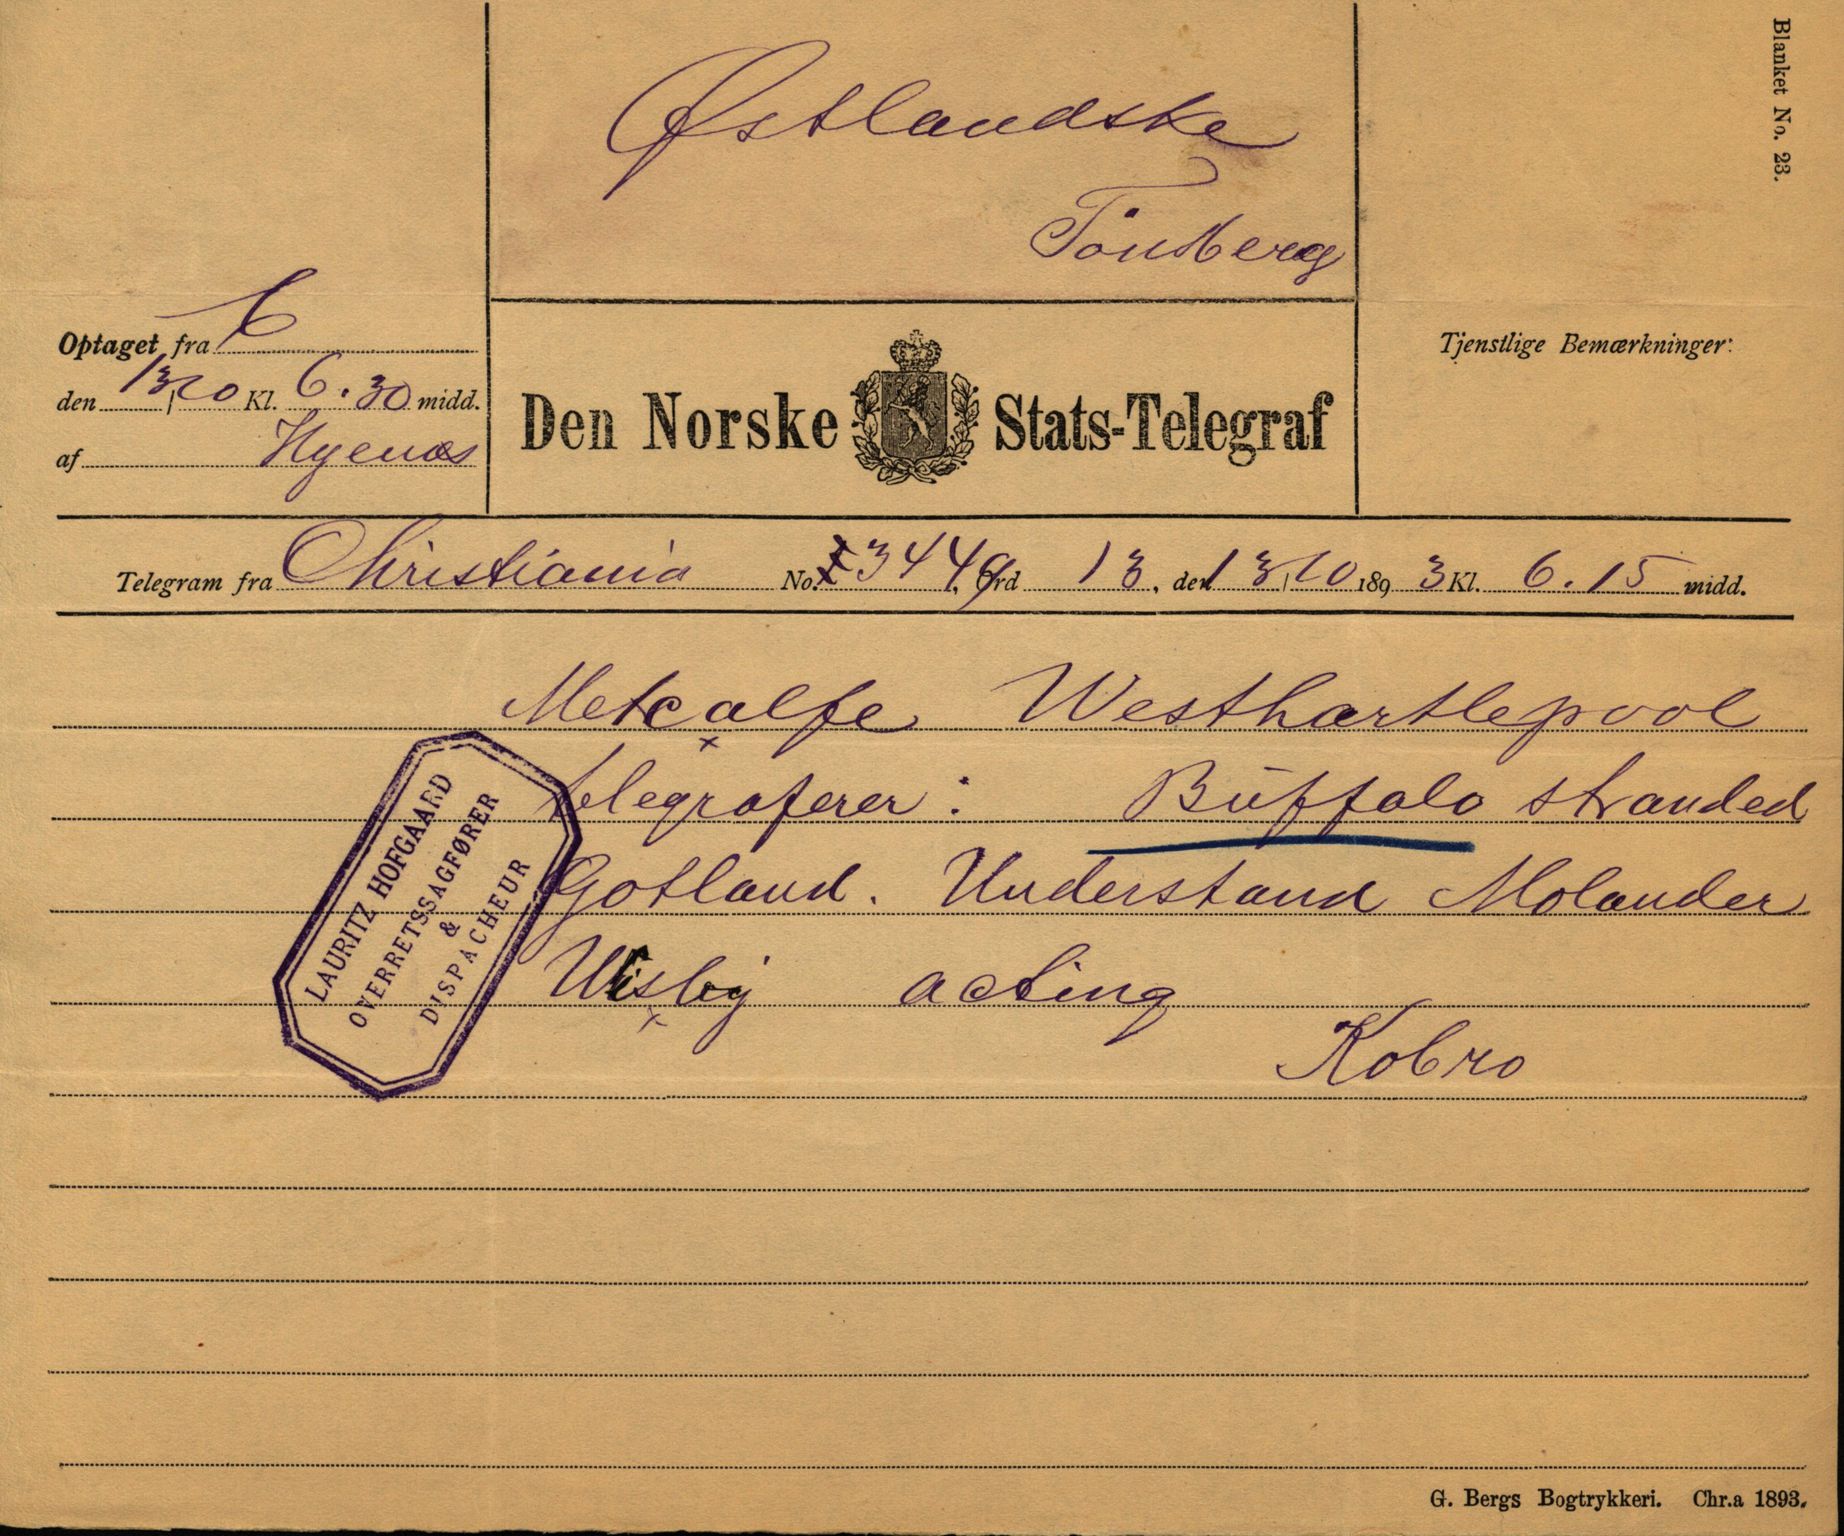 Blanket No. 23.
Østlandske
Tönsberg
Optaget fra C
den 13/10 Kl. 6.30 midd.
af Hyenæs
Den Norske Stats-Telegraf
Tjenstlige Bemærkninger:
Telegram fra Christiania No. 23449 Ord 13, den 13/10 1893 Kl. 6.15 midd.
Metcalfe Westhartlepool
telegraferer: Buffalo stranded
Gotland. Understand Molander
Wisby acting
Kobro
LAURITZ HOFGAARD
OVERRETSSAGFØRER
&
DISPACHEUR
G. Bergs Bogtrykkeri. Chr.a 1893.